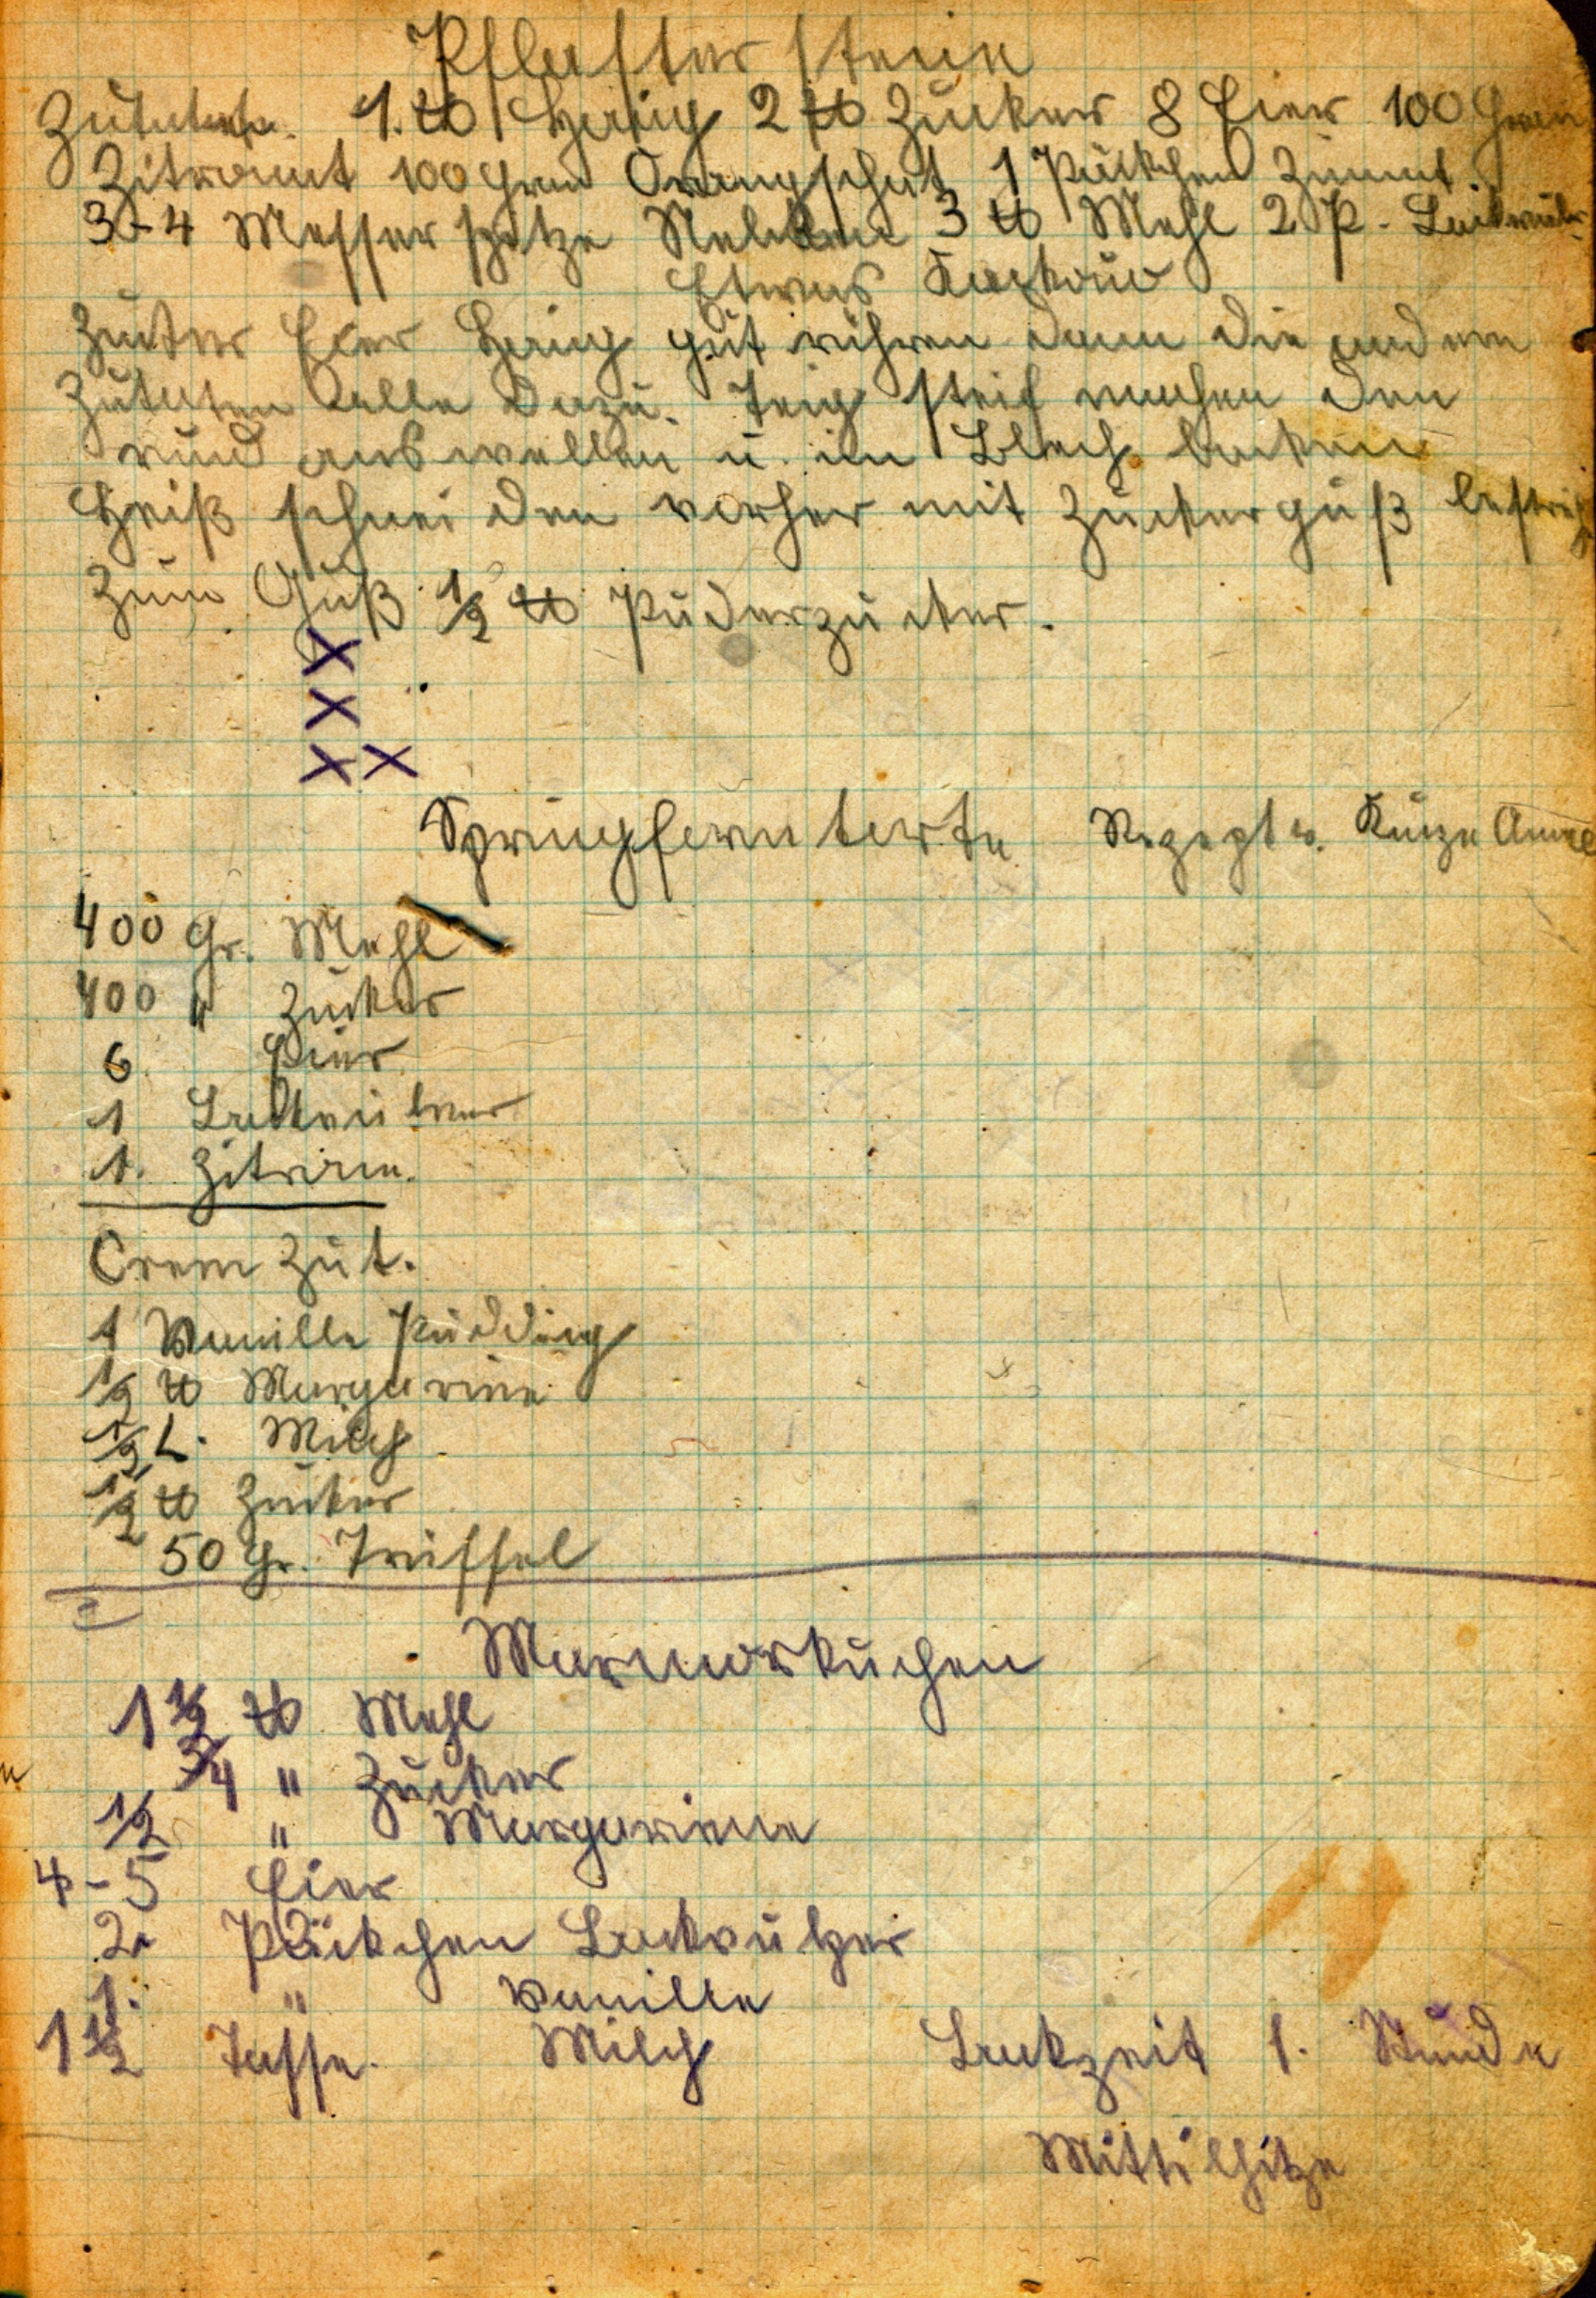 Pflasterstein
Zutaten. 1. ℔ Honig 2 ℔ Zucker 8 Eier 100 Gram
Zitronat 100 Gram Orangschat 1 Päckchen Zimmt.
3-4 Messerspitze Nelken 3 ℔ Mehl 2 P. Backpulv.
Etwas Kackau
Zucker Eier Honig gut rühren dann die andern
Zutaten alle dazu. Teig steif machen den
rund auswellen u. im Blech backen
Heiß schneiden vorher mit Zuckerguß bestreich
Zum Guß 1/2 ℔ Puderzucker.
X
X
X X
Springformtorte Rezept v. Kunze
400 Gr. Mehl
400 " Zucker
6 Eier
1 Backpulver
1. Zitrone.
Crem Zut.
1 Vanille Pudding
1/2 ℔ Margarine
1/2 L. Milch
1/2 ℔ Zucker
50 Gr. Trüffel
Marmorkuchen
1 1/2 ℔ Mehl
3/4 " Zucker
1/2 " Margariene
4-5 Eier
2. Päckchen Backpulver
1. " Vanille
1 1/2 Tasse. Milch Backzeit 1. Stunde
Mittelhitze